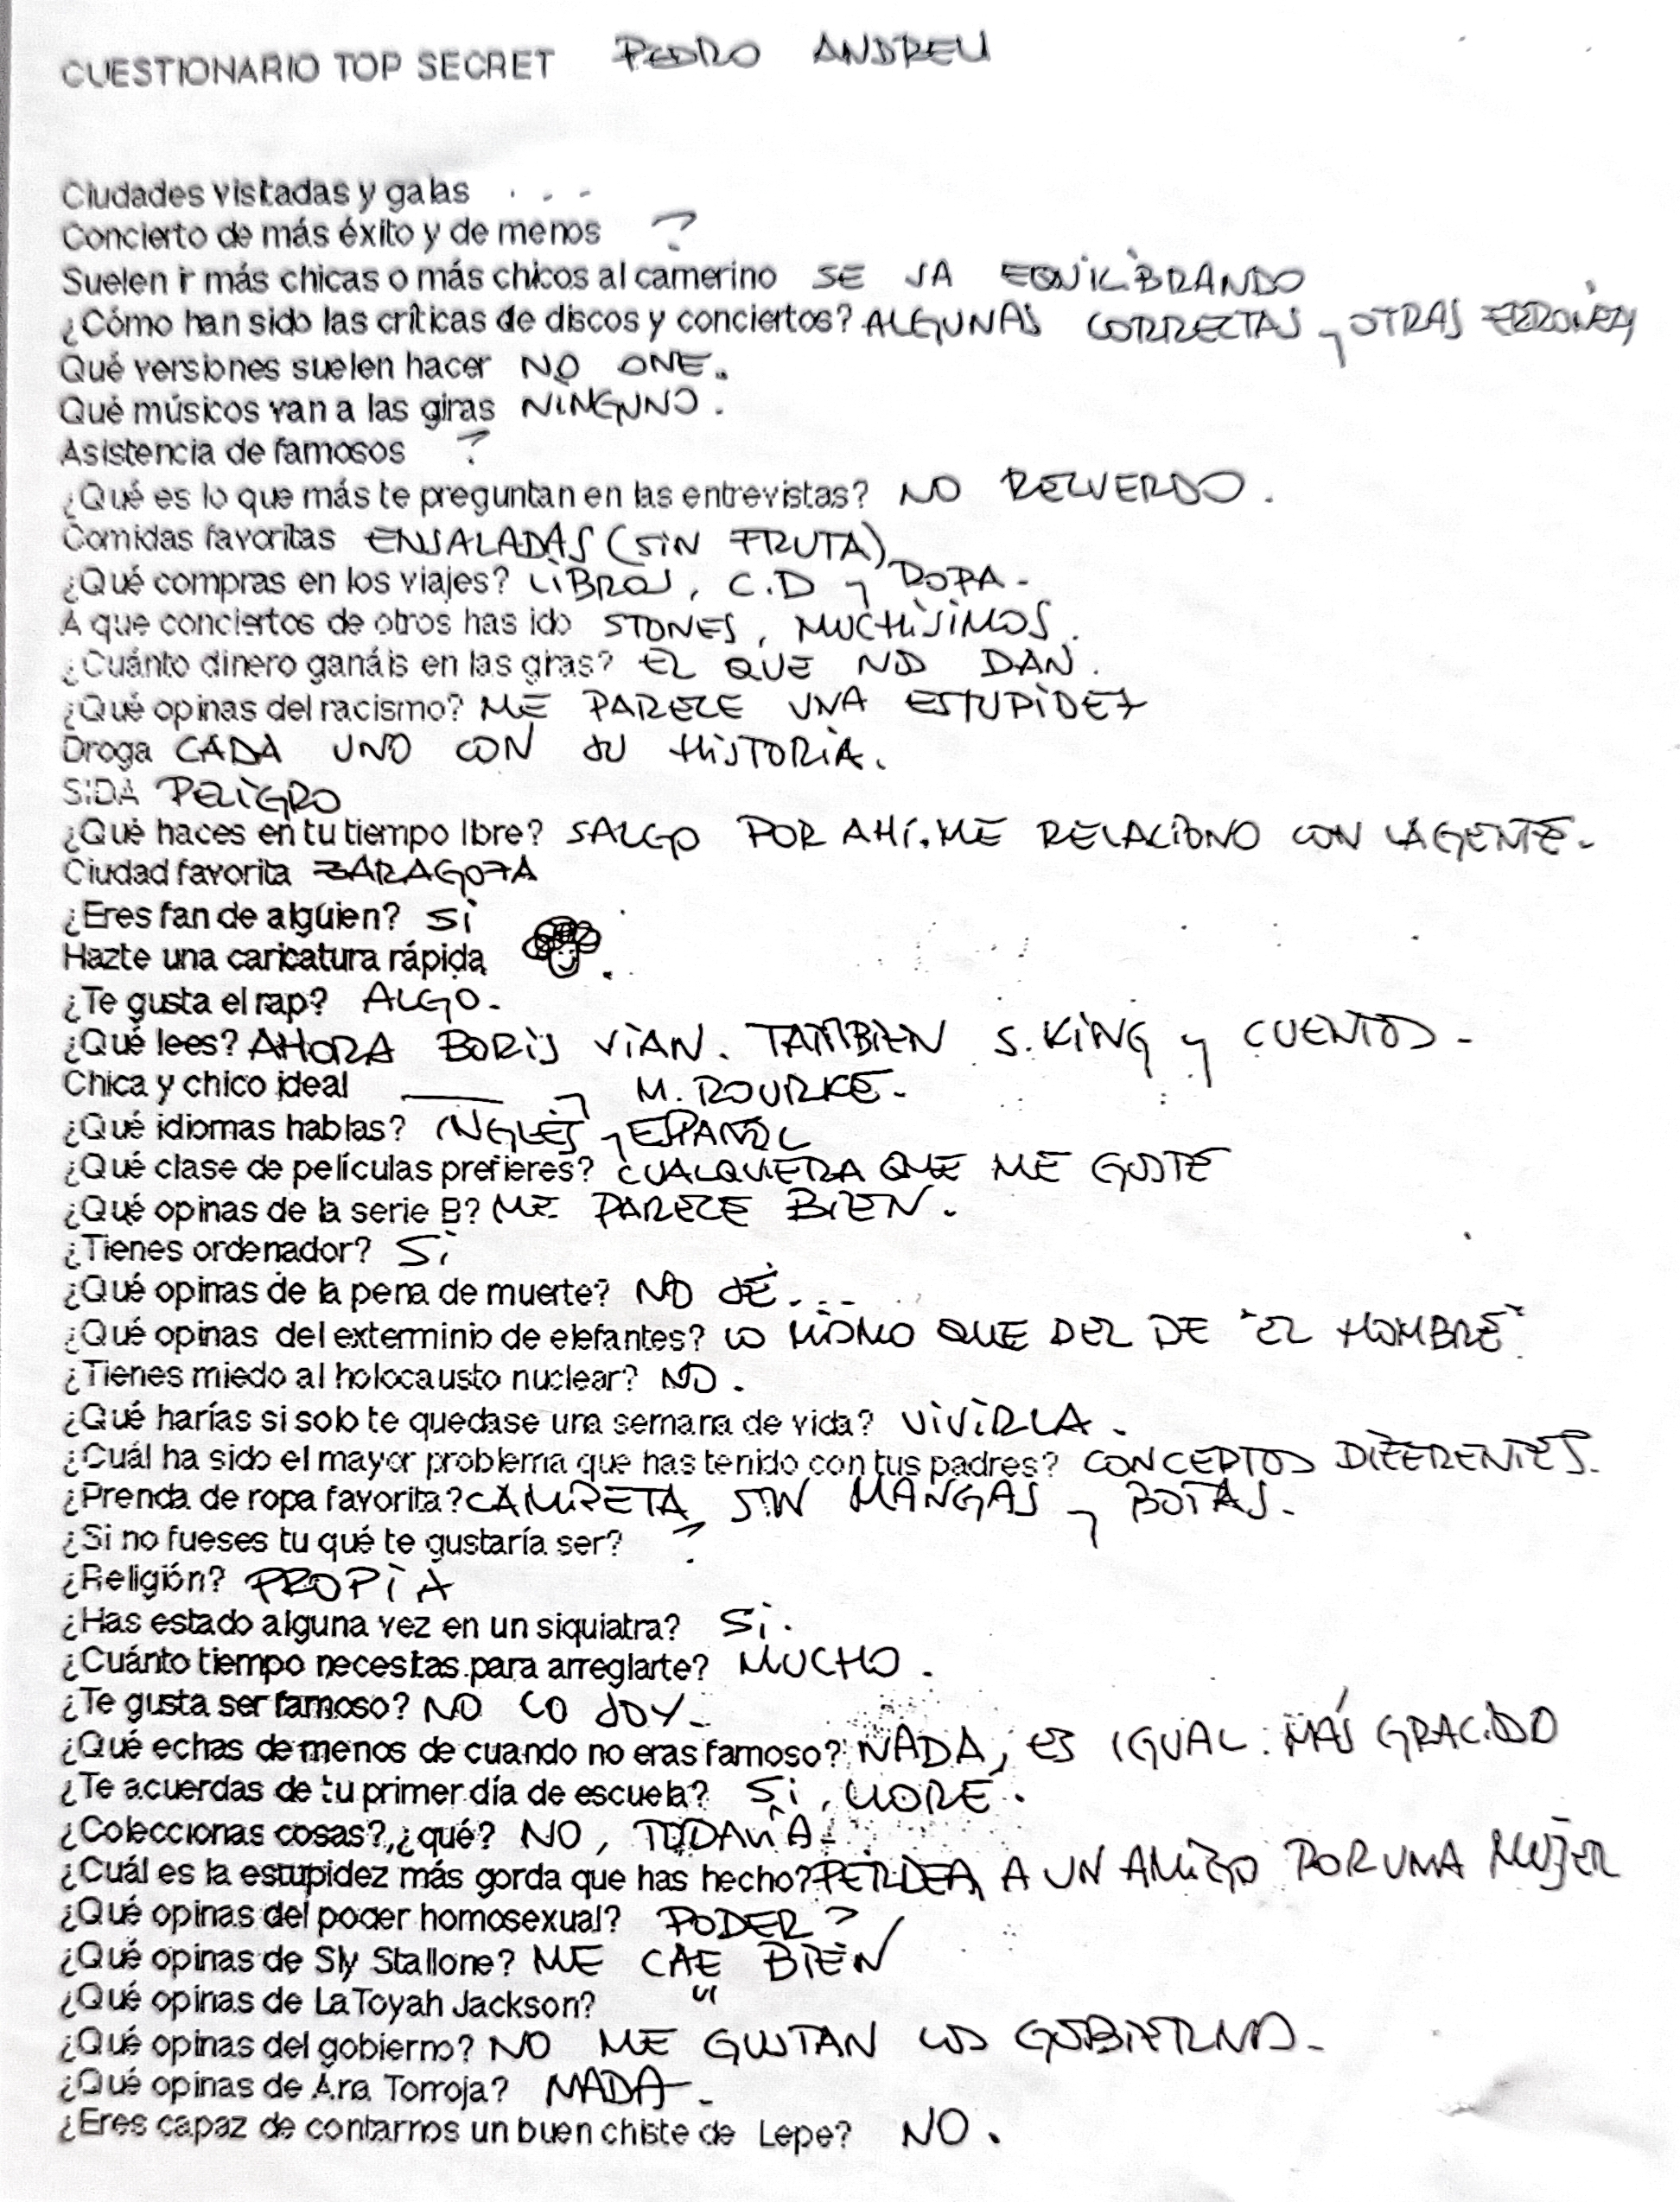 CUESTIONARIO TOP SECRET PEDRO ANDREU
Ciudades visitadas y galas . . -
Concierto de más éxito y de menos ?
Suelen ir más chicas o más chicos al camerino SE VA EQUILIBRANDO
¿Cómo han sido las críticas de discos y conciertos? ALGUNAS CORRECTAS y OTRAS ERRONEAS
Qué versiones suelen hacer NO ONE.
Qué músicos van a las giras NINGUNO.
Asistencia de famosos ?
¿Qué es lo que más te preguntan en las entrevistas? NO RECUERDO.
Comidas favoritas ENSALADAS (SIN FRUTA)
¿Qué compras en los viajes? LIBROS, C.D y ROPA-
A que conciertos de otros has ido STONES, MUCHISIMOS.
¿Cuánto dinero ganáis en las giras? EL QUE NOS DAN.
¿Qué opinas del racismo? ME PARECE UNA ESTUPIDEZ
Droga CADA UNO CON SU HISTORIA.
SIDA PELIGRO
¿Qué haces en tu tiempo libre? SALGO POR AHÍ. ME RELACIONO CON LA GENTE-
Ciudad favorita ZARAGOZA
¿Eres fan de alguien? SI
Hazte una caricatura rápida
¿Te gusta el rap? ALGO-
¿Qué lees? AHORA BORIS VIAN. TAMBIEN S. KING y CUENTOS-
Chica y chico ideal ____ y M. ROURKE-
¿Qué idiomas hablas? INGLES y ESPAÑOL
¿Qué clase de películas prefieres? CUALQUIERA QUE ME GUSTE
¿Qué opinas de la serie B? ME PARECE BIEN.
¿Tienes ordenador? SI
¿Qué opinas de la pena de muerte? NO SÉ...
¿Qué opinas del exterminio de elefantes? LO MISMO QUE DEL DE "EL HOMBRE".
¿Tienes miedo al holocausto nuclear? NO.
¿Qué harías si solo te quedase una semana de vida? VIVIRLA.
¿Cuál ha sido el mayor problema que has tenido con tus padres? CONCEPTOS DIFERENTES.
¿Prenda de ropa favorita? CAMISETA SIN MANGAS y BOTAS-
¿Si no fueses tu qué te gustaría ser? ?
¿Religión? PROPIA
¿Has estado alguna vez en un siquiatra? Si.
¿Cuánto tiempo necesitas para arreglarte? MUCHO.
¿Te gusta ser famoso? NO LO SOY-
¿Qué echas de menos de cuando no eras famoso? NADA, ES IGUAL. MÁS GRACIOSO
¿Te acuerdas de tu primer día de escuela? Si, LLORE.
¿Coleccionas cosas?, ¿qué? NO, TODAVÍA.
¿Cuál es la estupidez más gorda que has hecho? PERDER A UN AMIGO POR UNA MUJER
¿Qué opinas del poder homosexual? PODER?
¿Qué opinas de Sly Stallone? ME CAE BIEN
¿Qué opinas de LaToyah Jackson? "
¿Qué opinas del gobierno? NO ME GUSTAN LOS GOBIERNOS-
¿Qué opinas de Ana Torroja? NADA-
¿Eres capaz de contarnos un buen chiste de Lepe? NO.